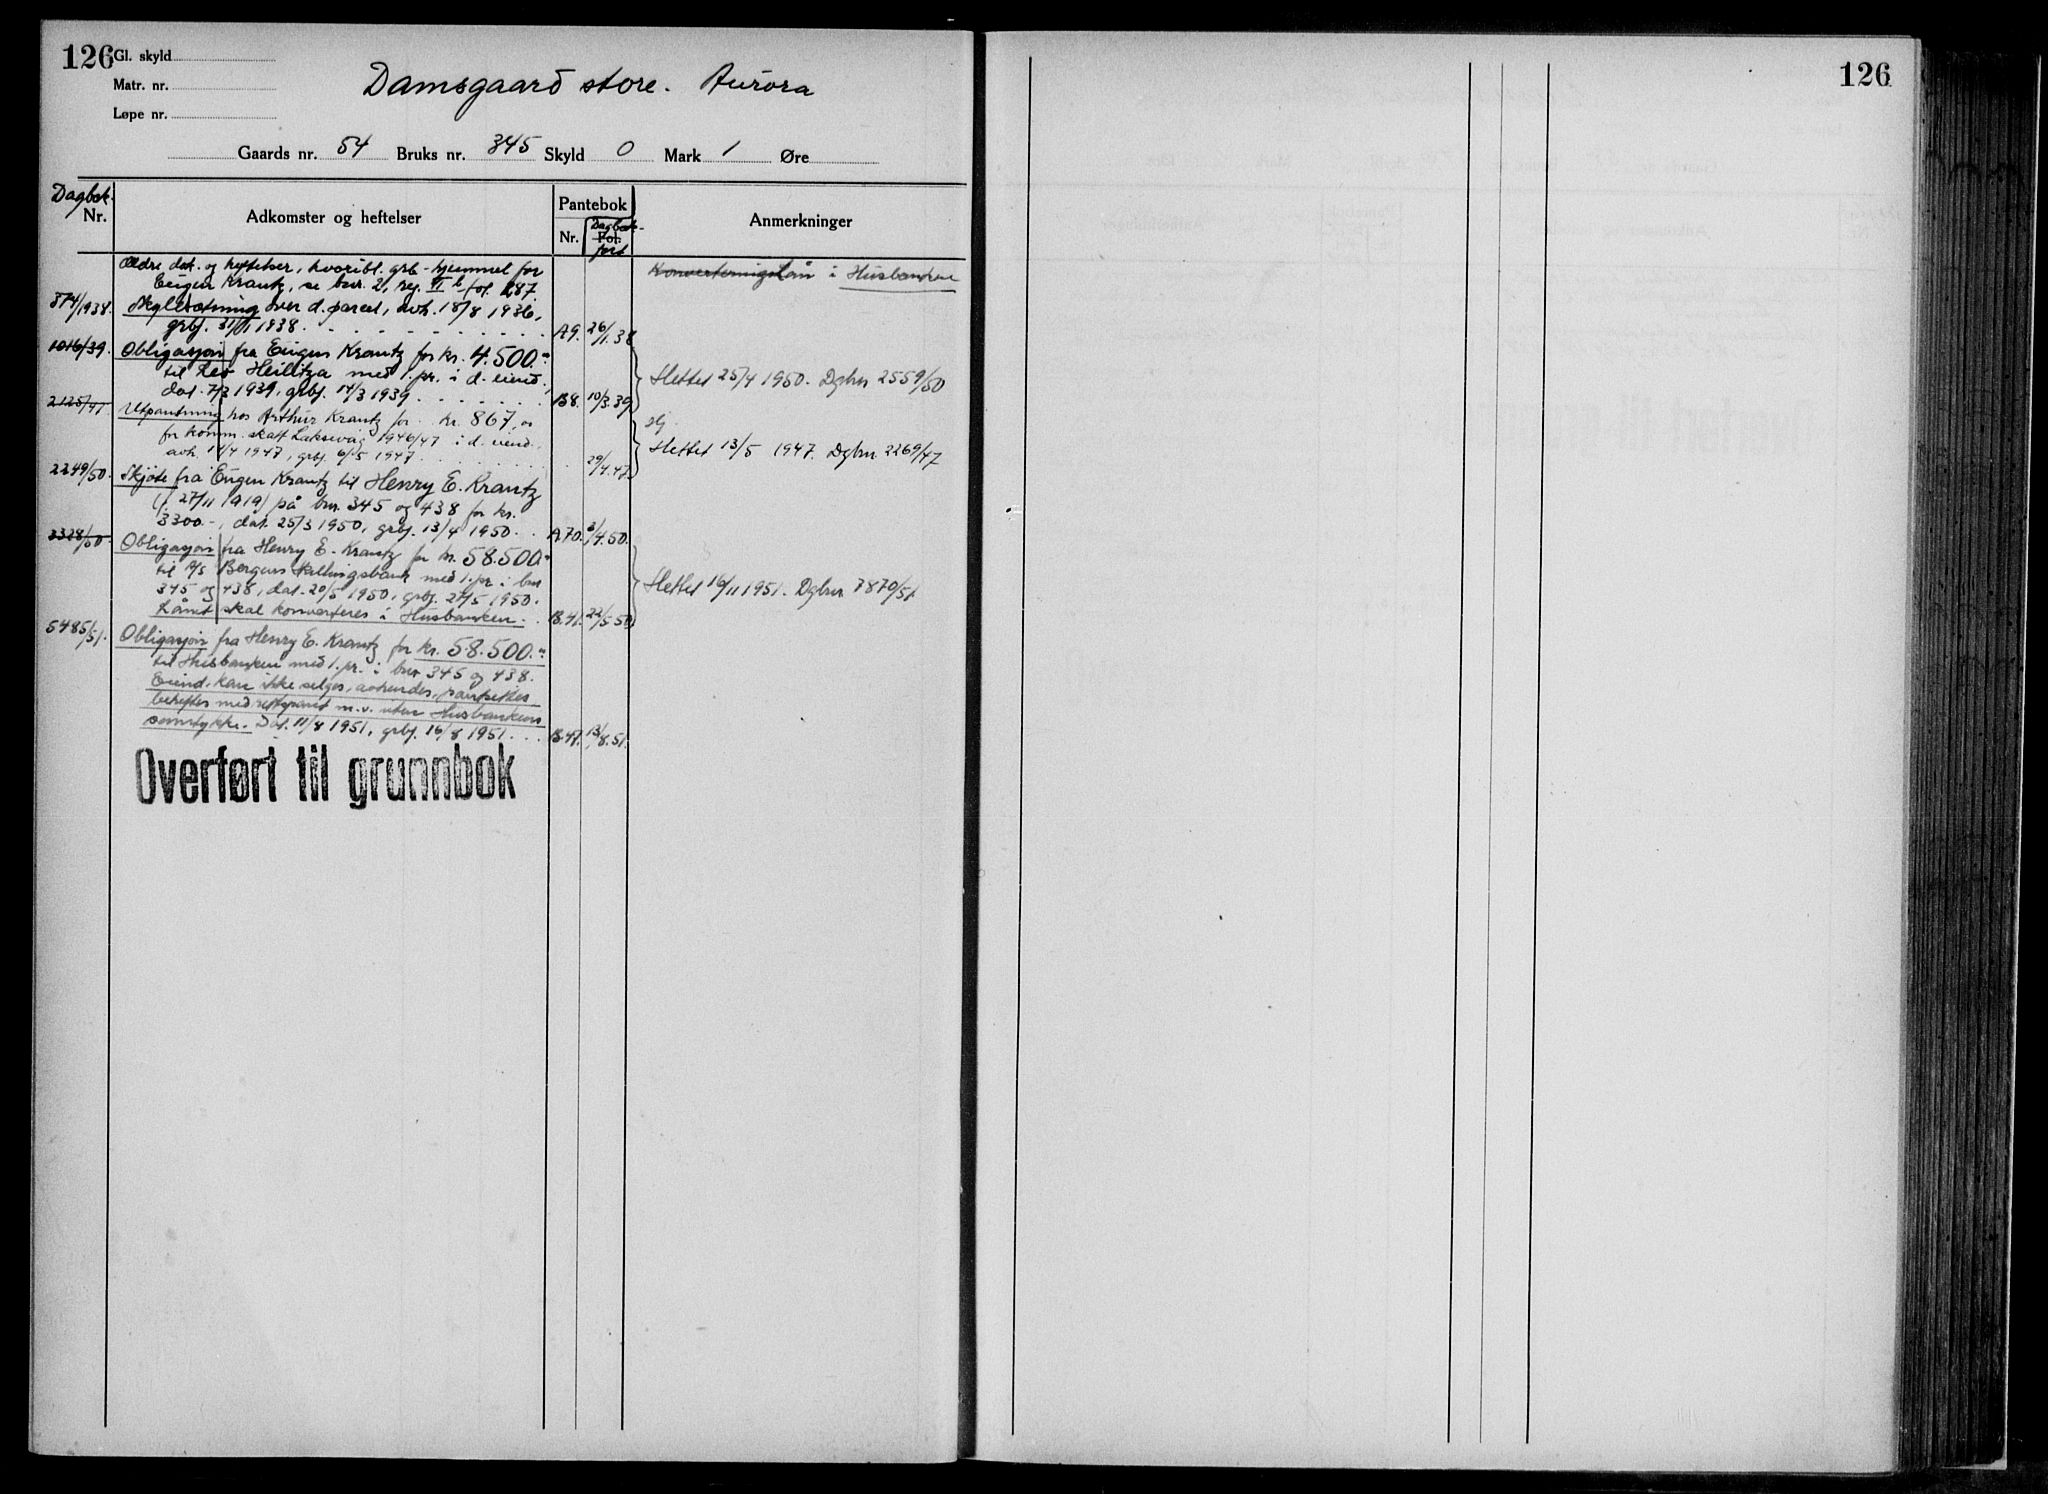 126
Gl. skyld
Matr. nr.
Løpe nr.
Damsgaard store. Aurora
Gaards nr. 54 Bruks nr. 345 Skyld 0 Mark 1 Øre
Dagbok.
Nr.
Adkomster og heftelser
Pantebok
Nr. Fol.
Dagbok-
ført
Anmerkninger
Ældre dok. og heftelser, hvoribl. grb-hjemmel for
Eugen Krantz, se bnr. 2, reg. II b fol. 287.
374/1938. Skyldsetning over d. parcel, avh. 18/8 1936,
grbf. 31/1 1938. A9. 26/1.38
Konverteringslån i Husbanken
1016/39. Obligasjon fra Eugen Krantz for kr. 4.500.-
til Leo Heilitza med 1. pr. i d. eiend.,
dat. 7/3 1939, grbf. 14/3 1939 B8. 10/3.39
Slettet 25/4 1950. Dgbnr 2559/50
2125/47. Utpantning hos Arthur Krantz for kr. 867,
for komm. skatt Laksevåg 1946/47 i d. eiend.
avh. 14/4 1947, grbf. 6/5 1947. 29/4.47
Slettet 13/5 1947. Dgbnr 2269/47
2249/50. Skjøte fra Eugen Krantz til Henry E. Krantz
(f. 27/11 1919) på bnr. 345 og 438 for kr.
3300.-, dat. 25/3 1950, grbf. 13/4 1950. A70. 3/4.50.
3328/50. Obligasjon fra Henry E. Krantz for kr. 58.500.-
til A/S Bergens Skillingsbank med 1. pr. i bnr
345 og 438, dat. 20/5 1950, grbf. 27/5 1950.
Lånet skal konverteres i Husbanken. B.41. 22/5.50
Slettet 16/11 1951. Dgbnr 7870/51
5485/51. Obligasjon fra Henry E. Krantz for kr. 58.500.-
til Husbanken med 1. pr. i bnr 345 og 438.
Eiend. kan ikke selges, avhendes, pantsettes
beheftes med rettspant m.v. uten Husbankens
samtykke. Dat. 11/8 1951, grbf. 16/8 1951. B.47. 13/8.51.
Overført til grunnbok
126